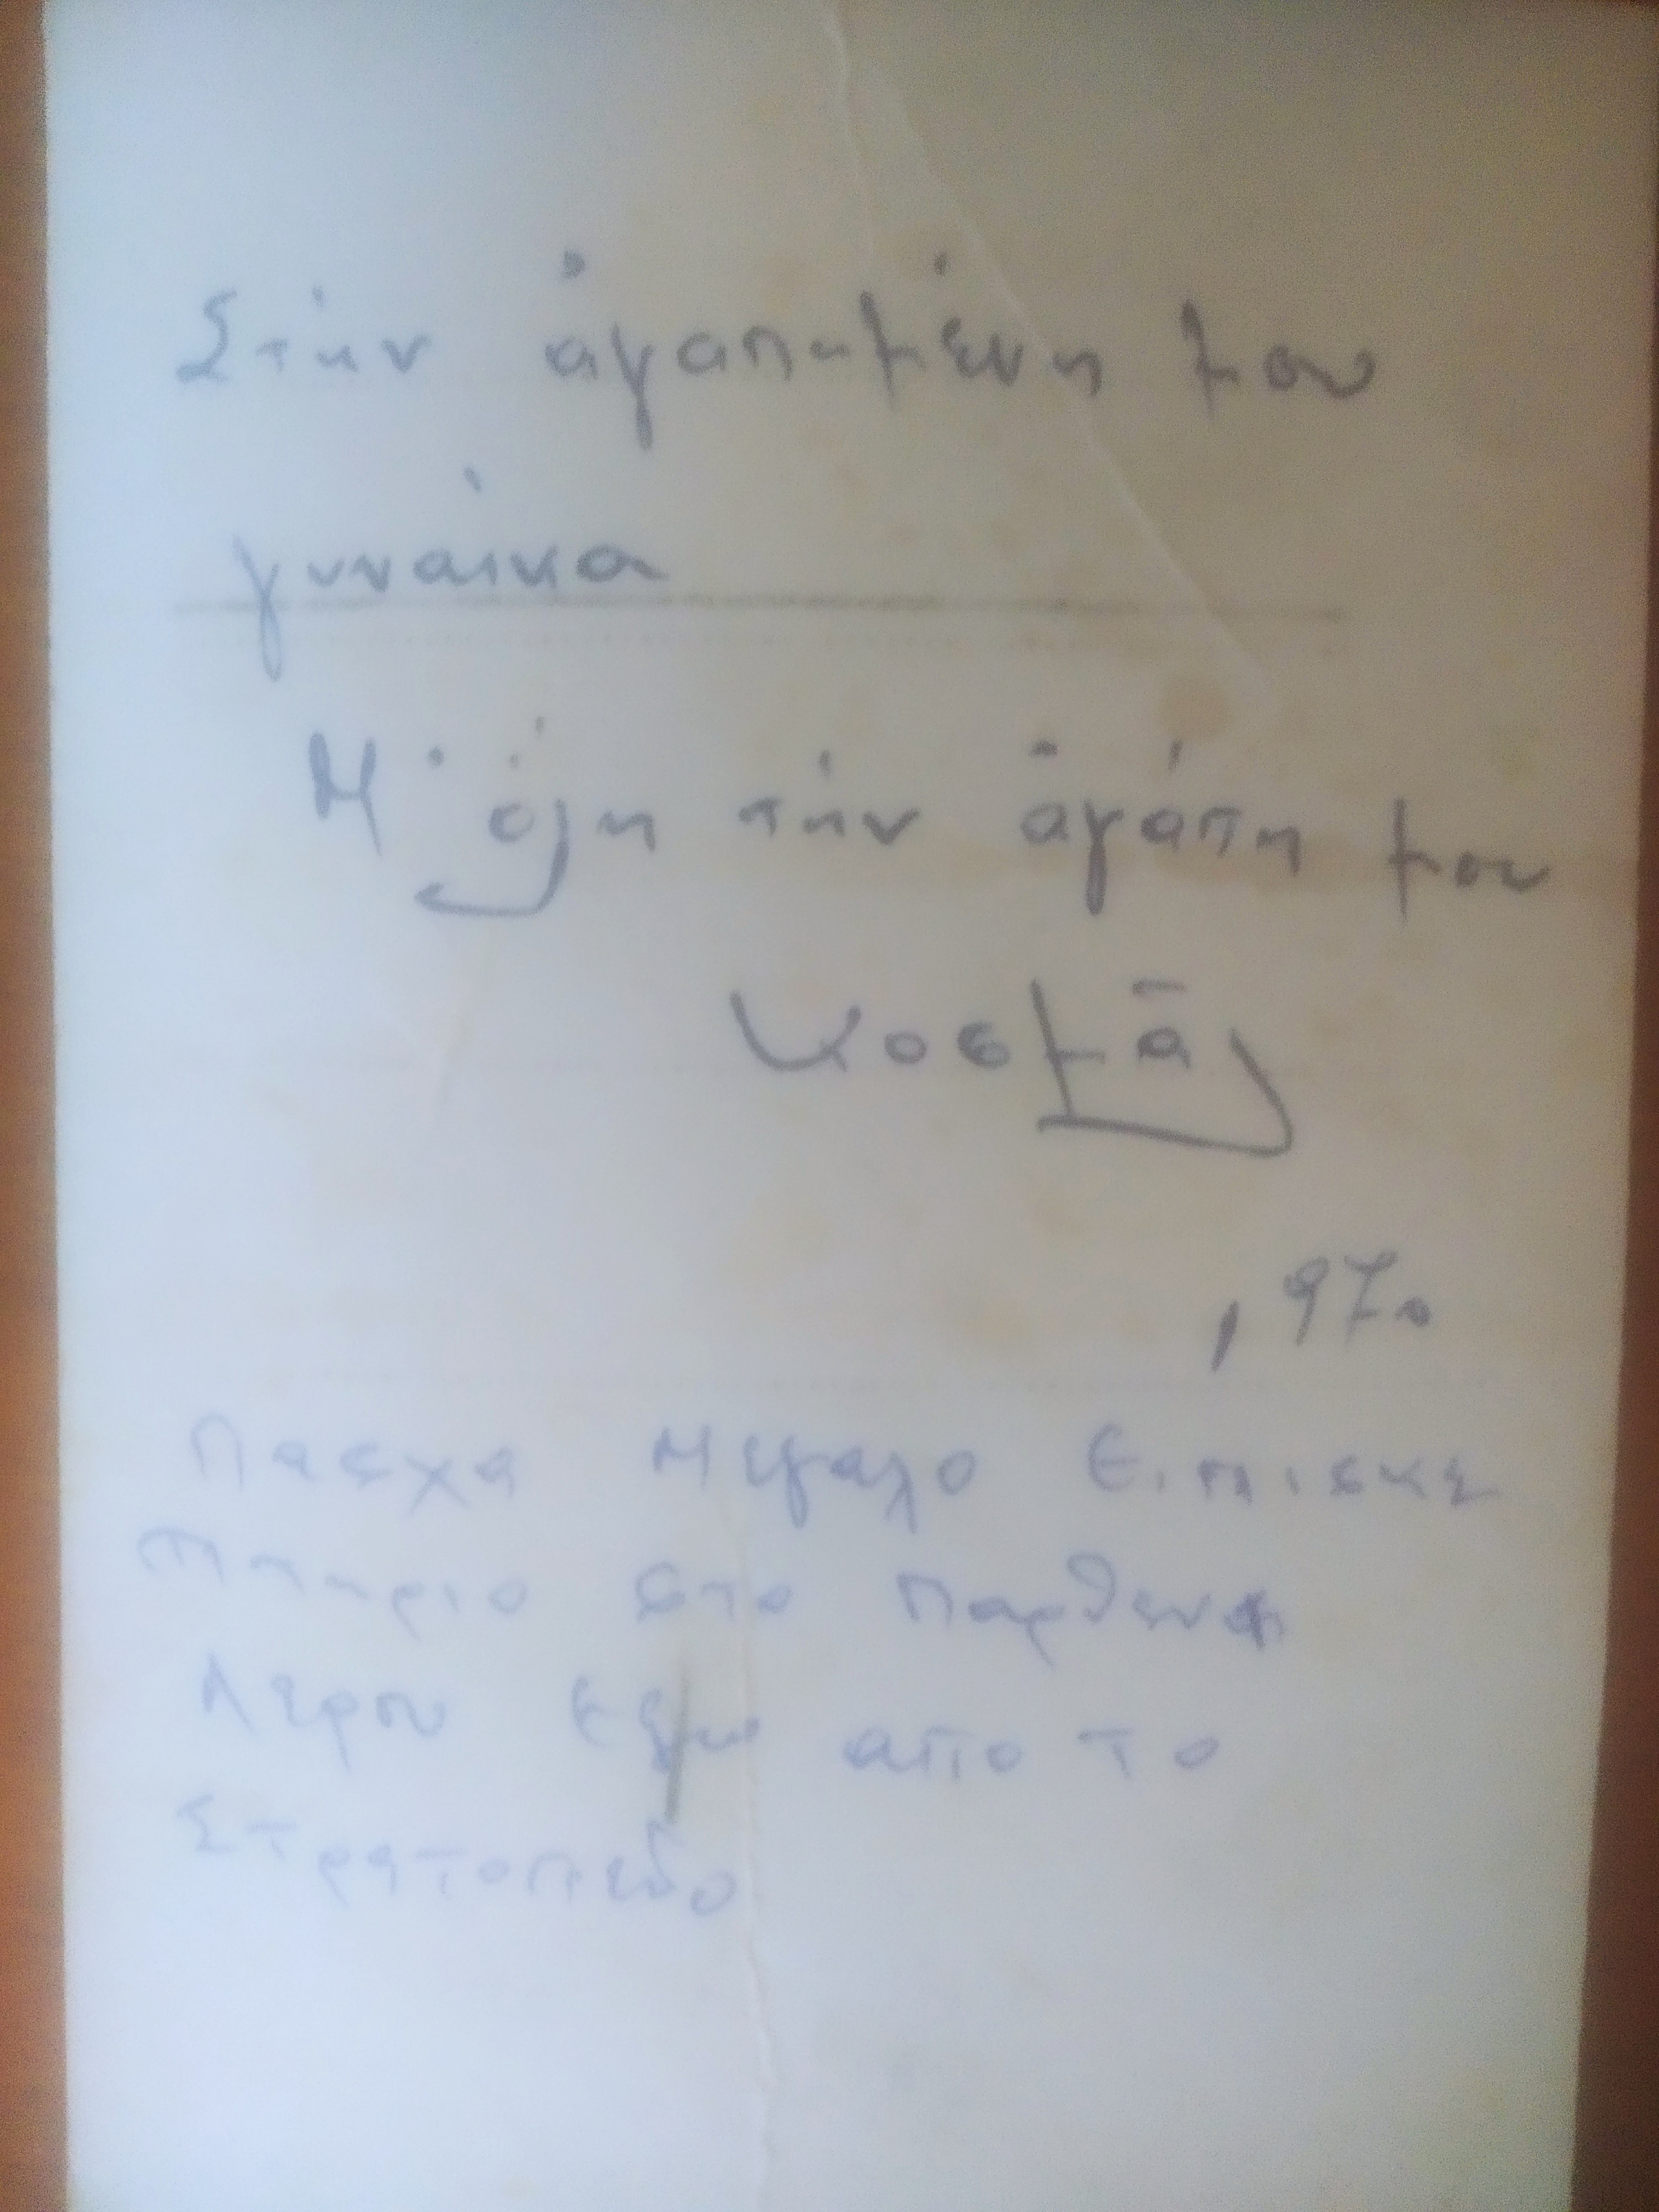 Στήν ἀγαπημένη μου
γυναίκα
Μ' ὅλη τήν ἀγάπη μου
Κοσμᾶς
1970
Πασχα Μεγαλο Επισκε
πτηριο στο Παρθενι
Λερου εξω απο το
Στρατοπεδο